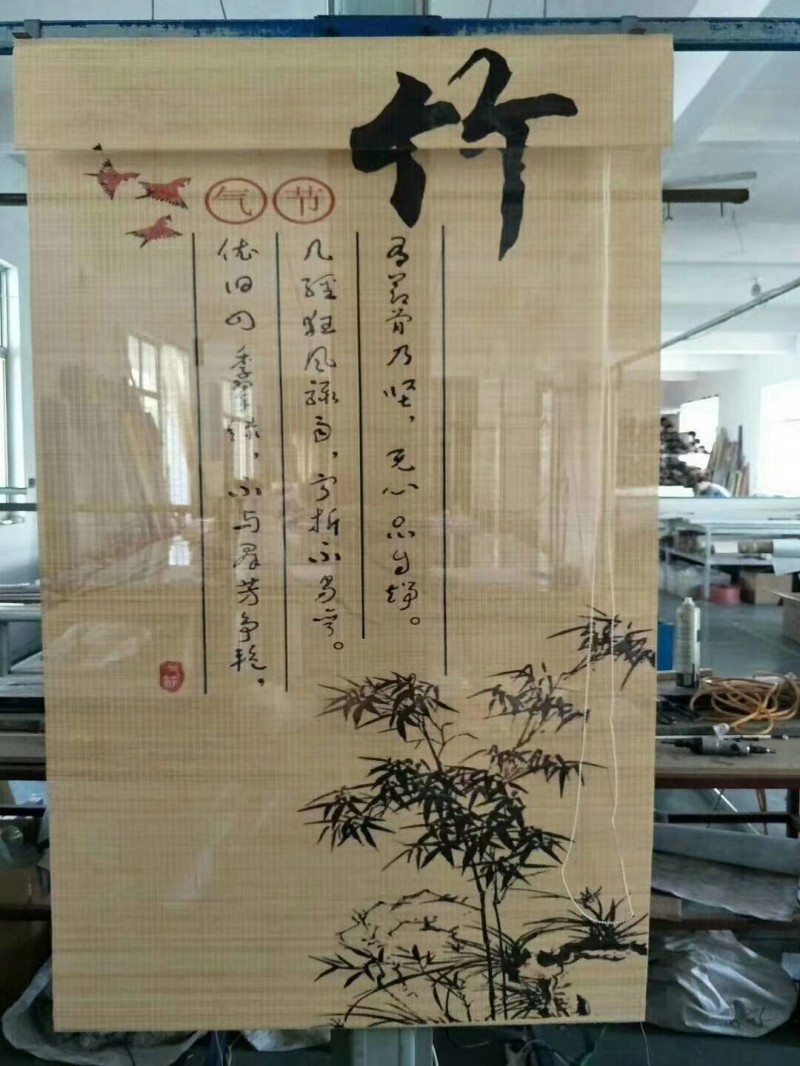 竹
气节
有节骨乃坚，无心品自端。
几經狂风骤雨，宁折不易弯。
依旧四季翠绿，不与群芳争艳。